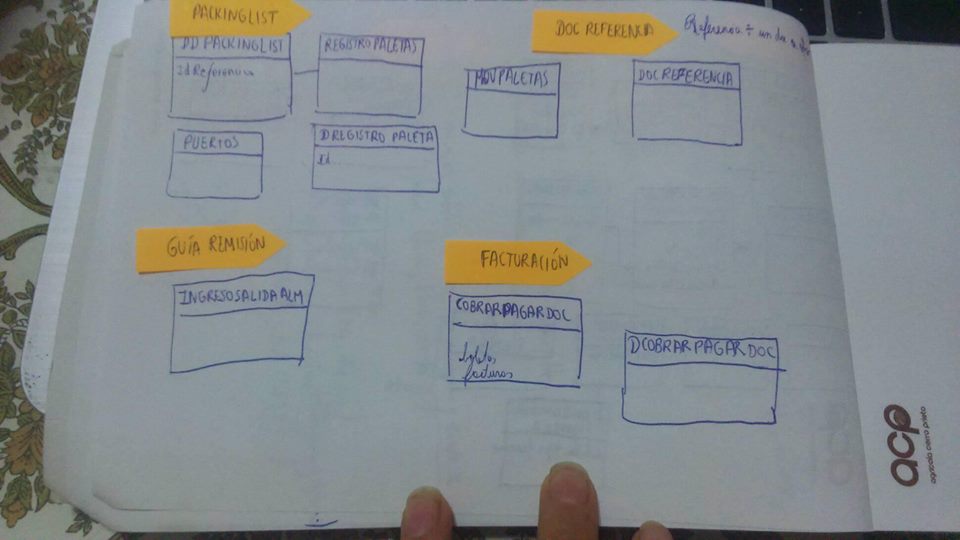 PACKINGLIST
PACKINGLIST
IdReferencia
REGISTROPALETAS
PUERTOS
DREGISTRO PALETA
Id
DOC REFERENCIA
Referencia
un doc
MOVPALETAS
DOCREFERENCIA
GUÍA REMISIÓN
INGRESOSALIDAALM
FACTURACIÓN
COBRARPAGARDOC
facturas
DCOBRARPAGARDOC
acp
agrícola cerro prieto